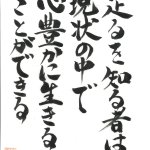 足るを知る者は
現状の中で
心豊かに生きる
ことができる